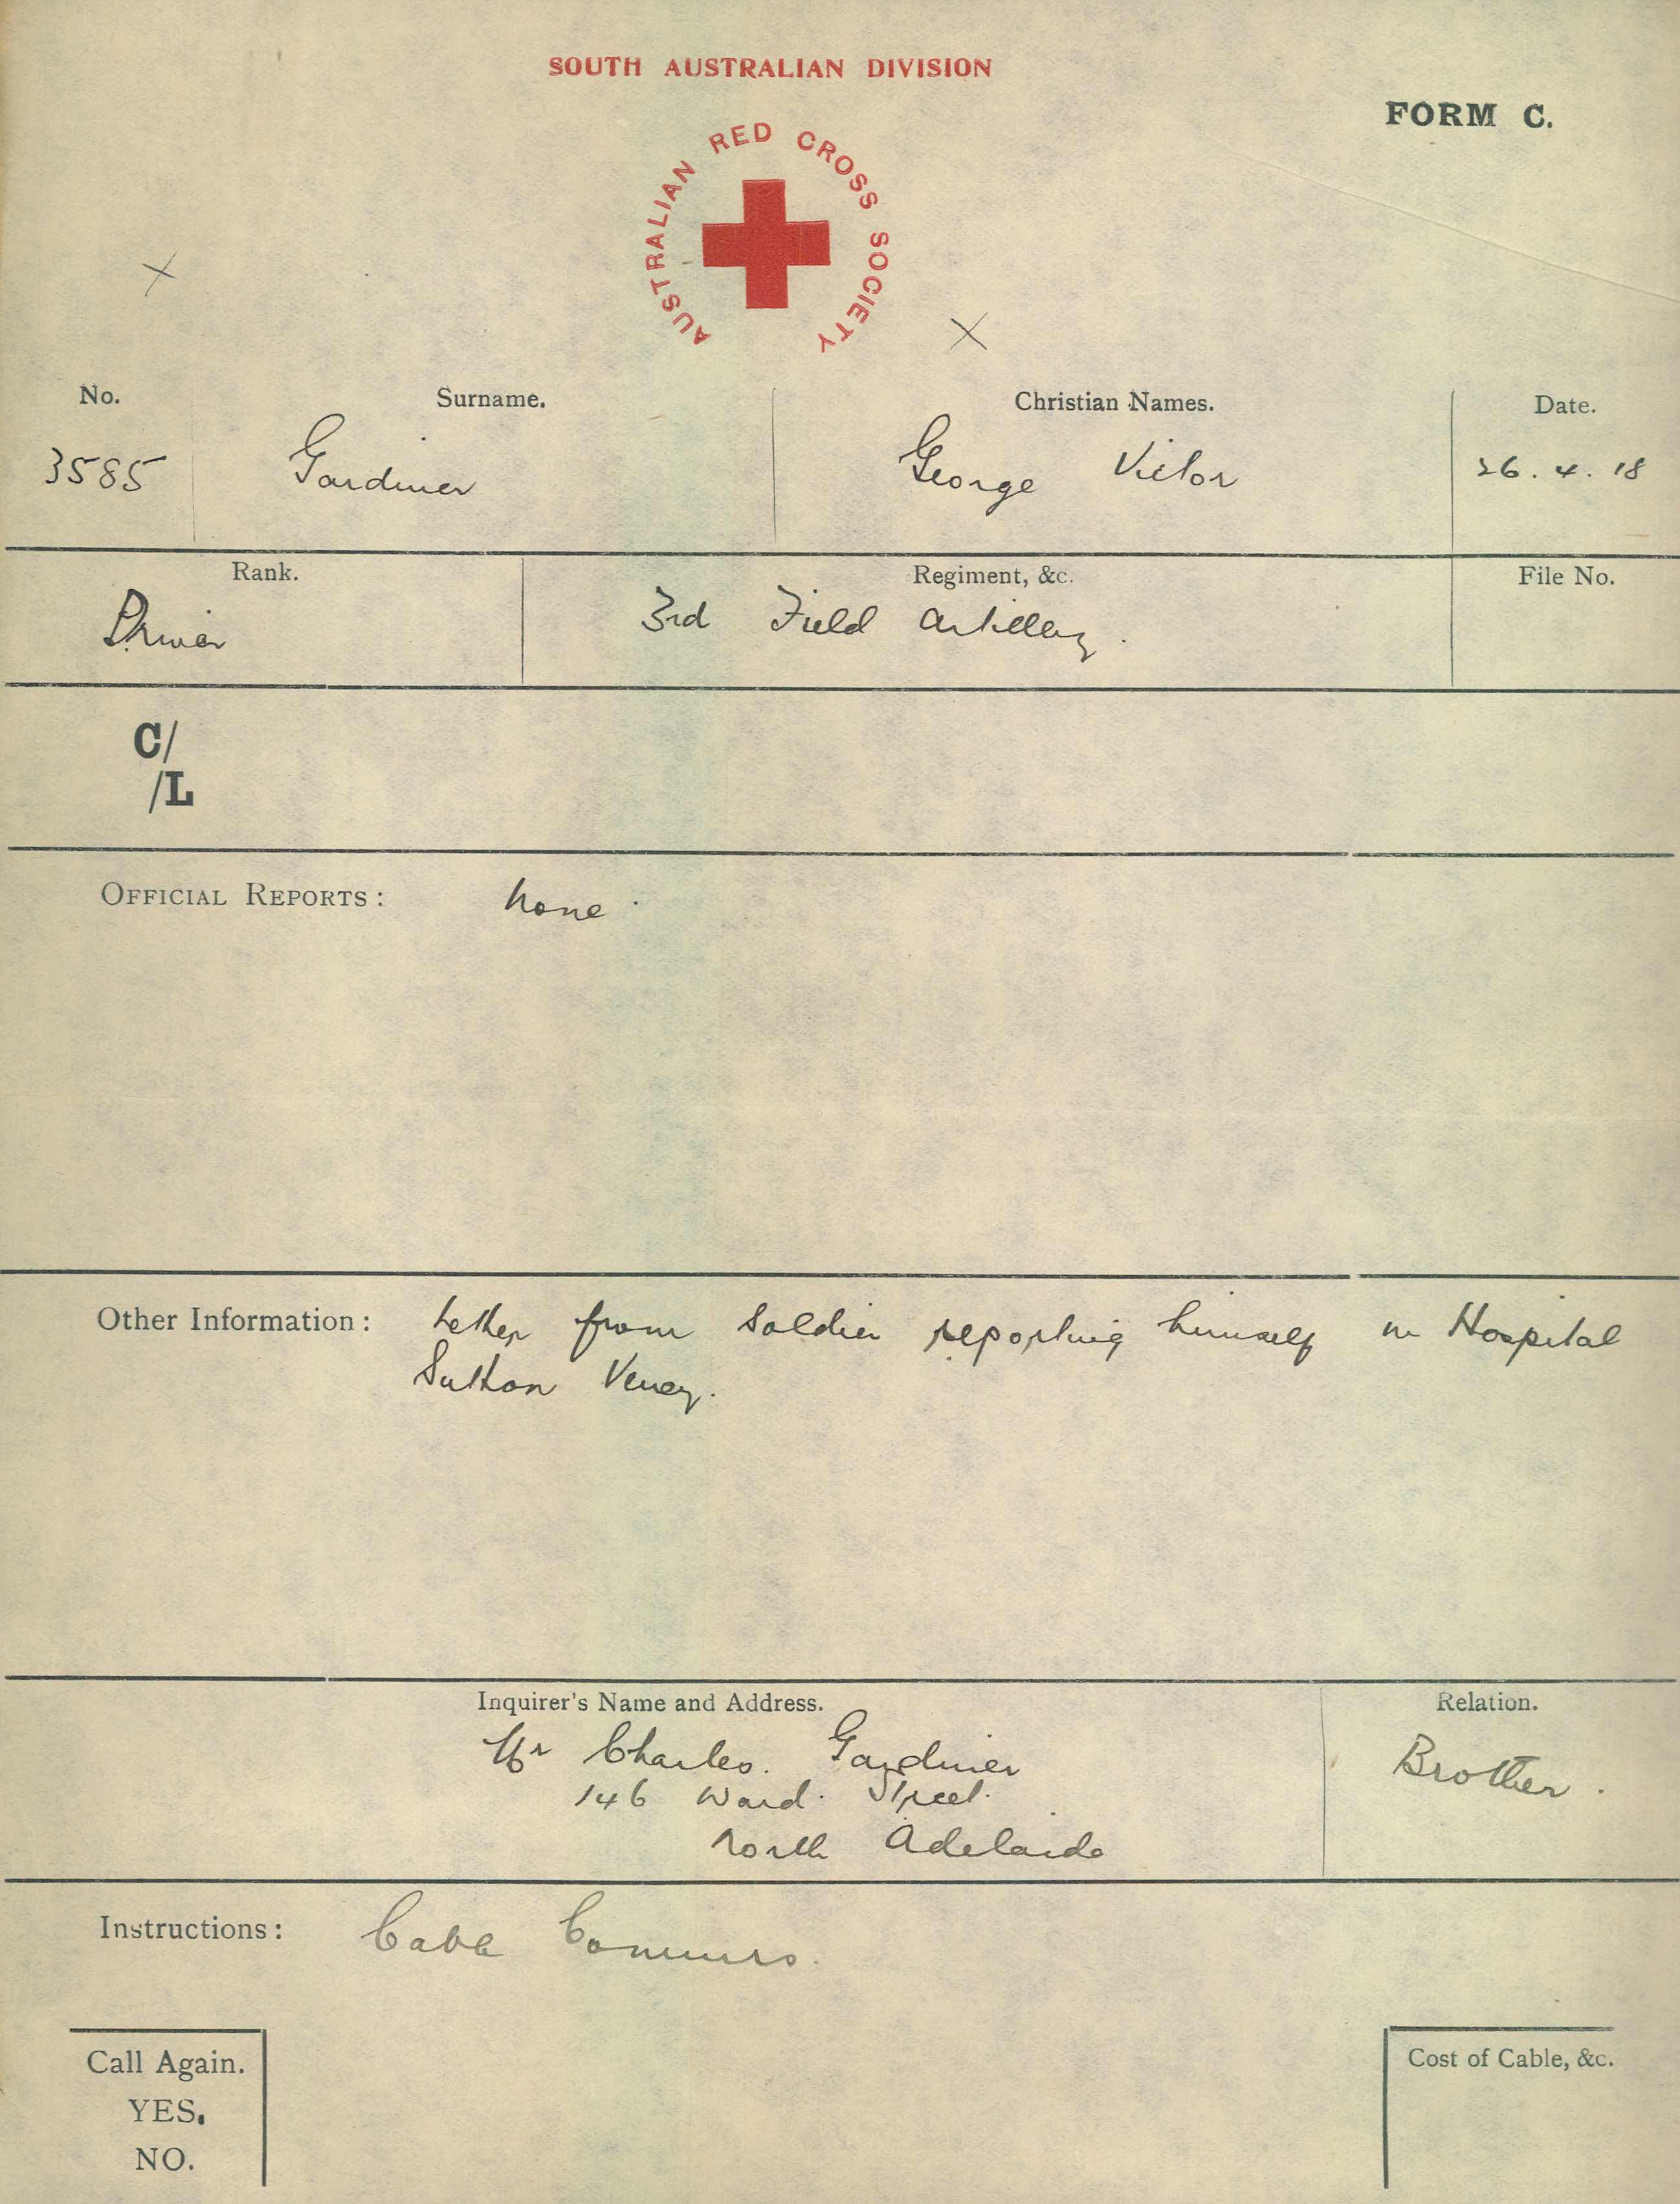 SOUTH AUSTRALIAN DIVISION
FORM C.
AUSTRALIAN RED CROSS SOCIETY
No. Surname. Christian Names. Date.
3585 Gardiner George Victor 26.4.18
Rank. Regiment, &c. File No.
Driver 3rd Field Artillery.
C/
/L
OFFICIAL REPORTS: None.
Other Information: Letter from soldier reporting himself in Hospital
Sutton Veney.
Inquirer's Name and Address. Relation.
Mr Charles. Gardiner Brother.
146 Ward. Street.
North Adelaide
Instructions: Cable Commrs.
Call Again. Cost of Cable, &c.
YES.
NO.